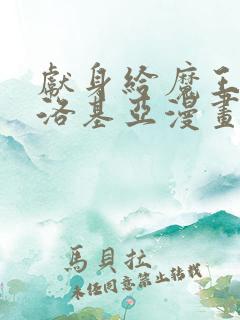 獻身給魔王
洛基亞漫畫
馬貝拉
未經同意禁止轉載